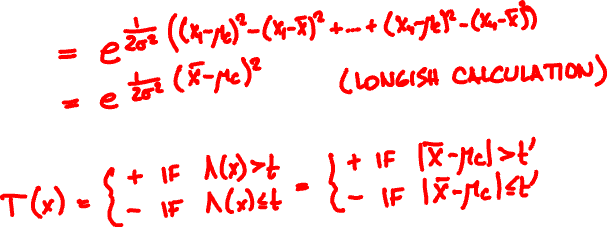 = e^{\frac{1}{2σ²} ((x₁-μ_c)² - (x₁-x̄)² + ... + (x_n-μ_c)² - (x_n-x̄)²)}
= e^{\frac{1}{2σ²} (x̄-μ_c)²} (LONGISH CALCULATION)
T(x) = { + IF Λ(x)>t = { + IF |x̄-μ_c|>t'
- IF Λ(x)≤t - IF |x̄-μ_c|≤t'